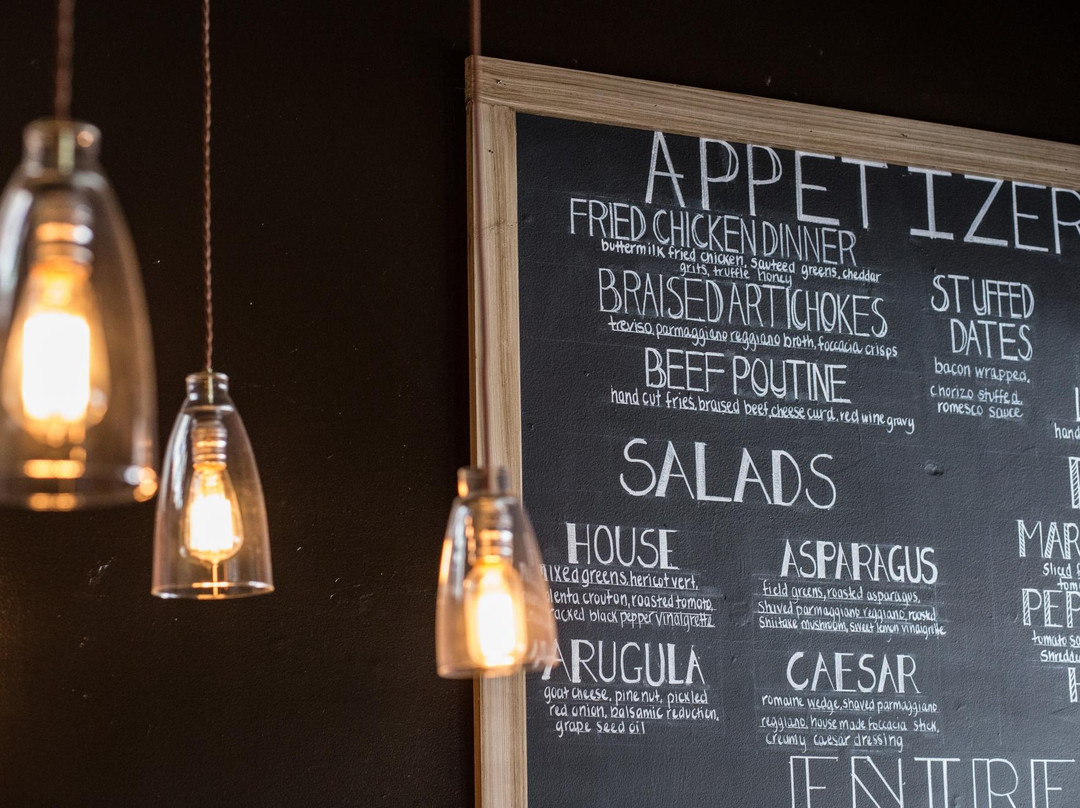 APPETIZER
FRIED CHICKEN DINNER
buttermilk fried chicken, sauteed greens, cheddar
grits, truffle honey
BRAISED ARTICHOKES
treviso, parmaggiano reggiano broth, foccacia crisps
BEEF POUTINE
hand cut fries, braised beef, cheese curd, red wine gravy
STUFFED
DATES
bacon wrapped,
chorizo stuffed,
romesco sauce
SALADS
HOUSE
mixed greens, hericot vert,
crouton, roasted tomato,
black pepper vinaigrette
ARUGULA
goat cheese, pine nut, pickled
red onion, balsamic reduction,
grape seed oil
ASPARAGUS
field greens, roasted asparagus,
shaved parmaggiano reggiano, roasted
shiitake mushroom, sweet lemon vinaigrite
CAESAR
romaine wedge, shaved parmaggiano
reggiano, house made foccacia stick,
creamy caesar dressing
ENTRE
hand
MAR
sliced
PEP
tomato